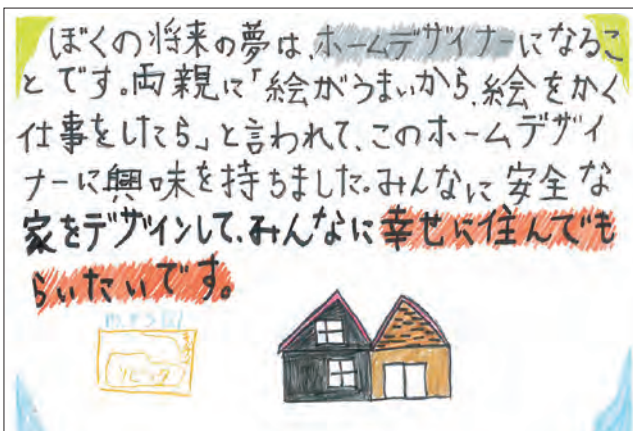 ぼくの将来の夢は、ホームデザイナーになるこ
とです。両親に「絵がうまいから、絵をかく
仕事をしたら」と言われて、このホームデザイ
ナーに興味を持ちました。みんなに安全な
家をデザインして、みんなに幸せに住んでも
らいたいです。
リビング